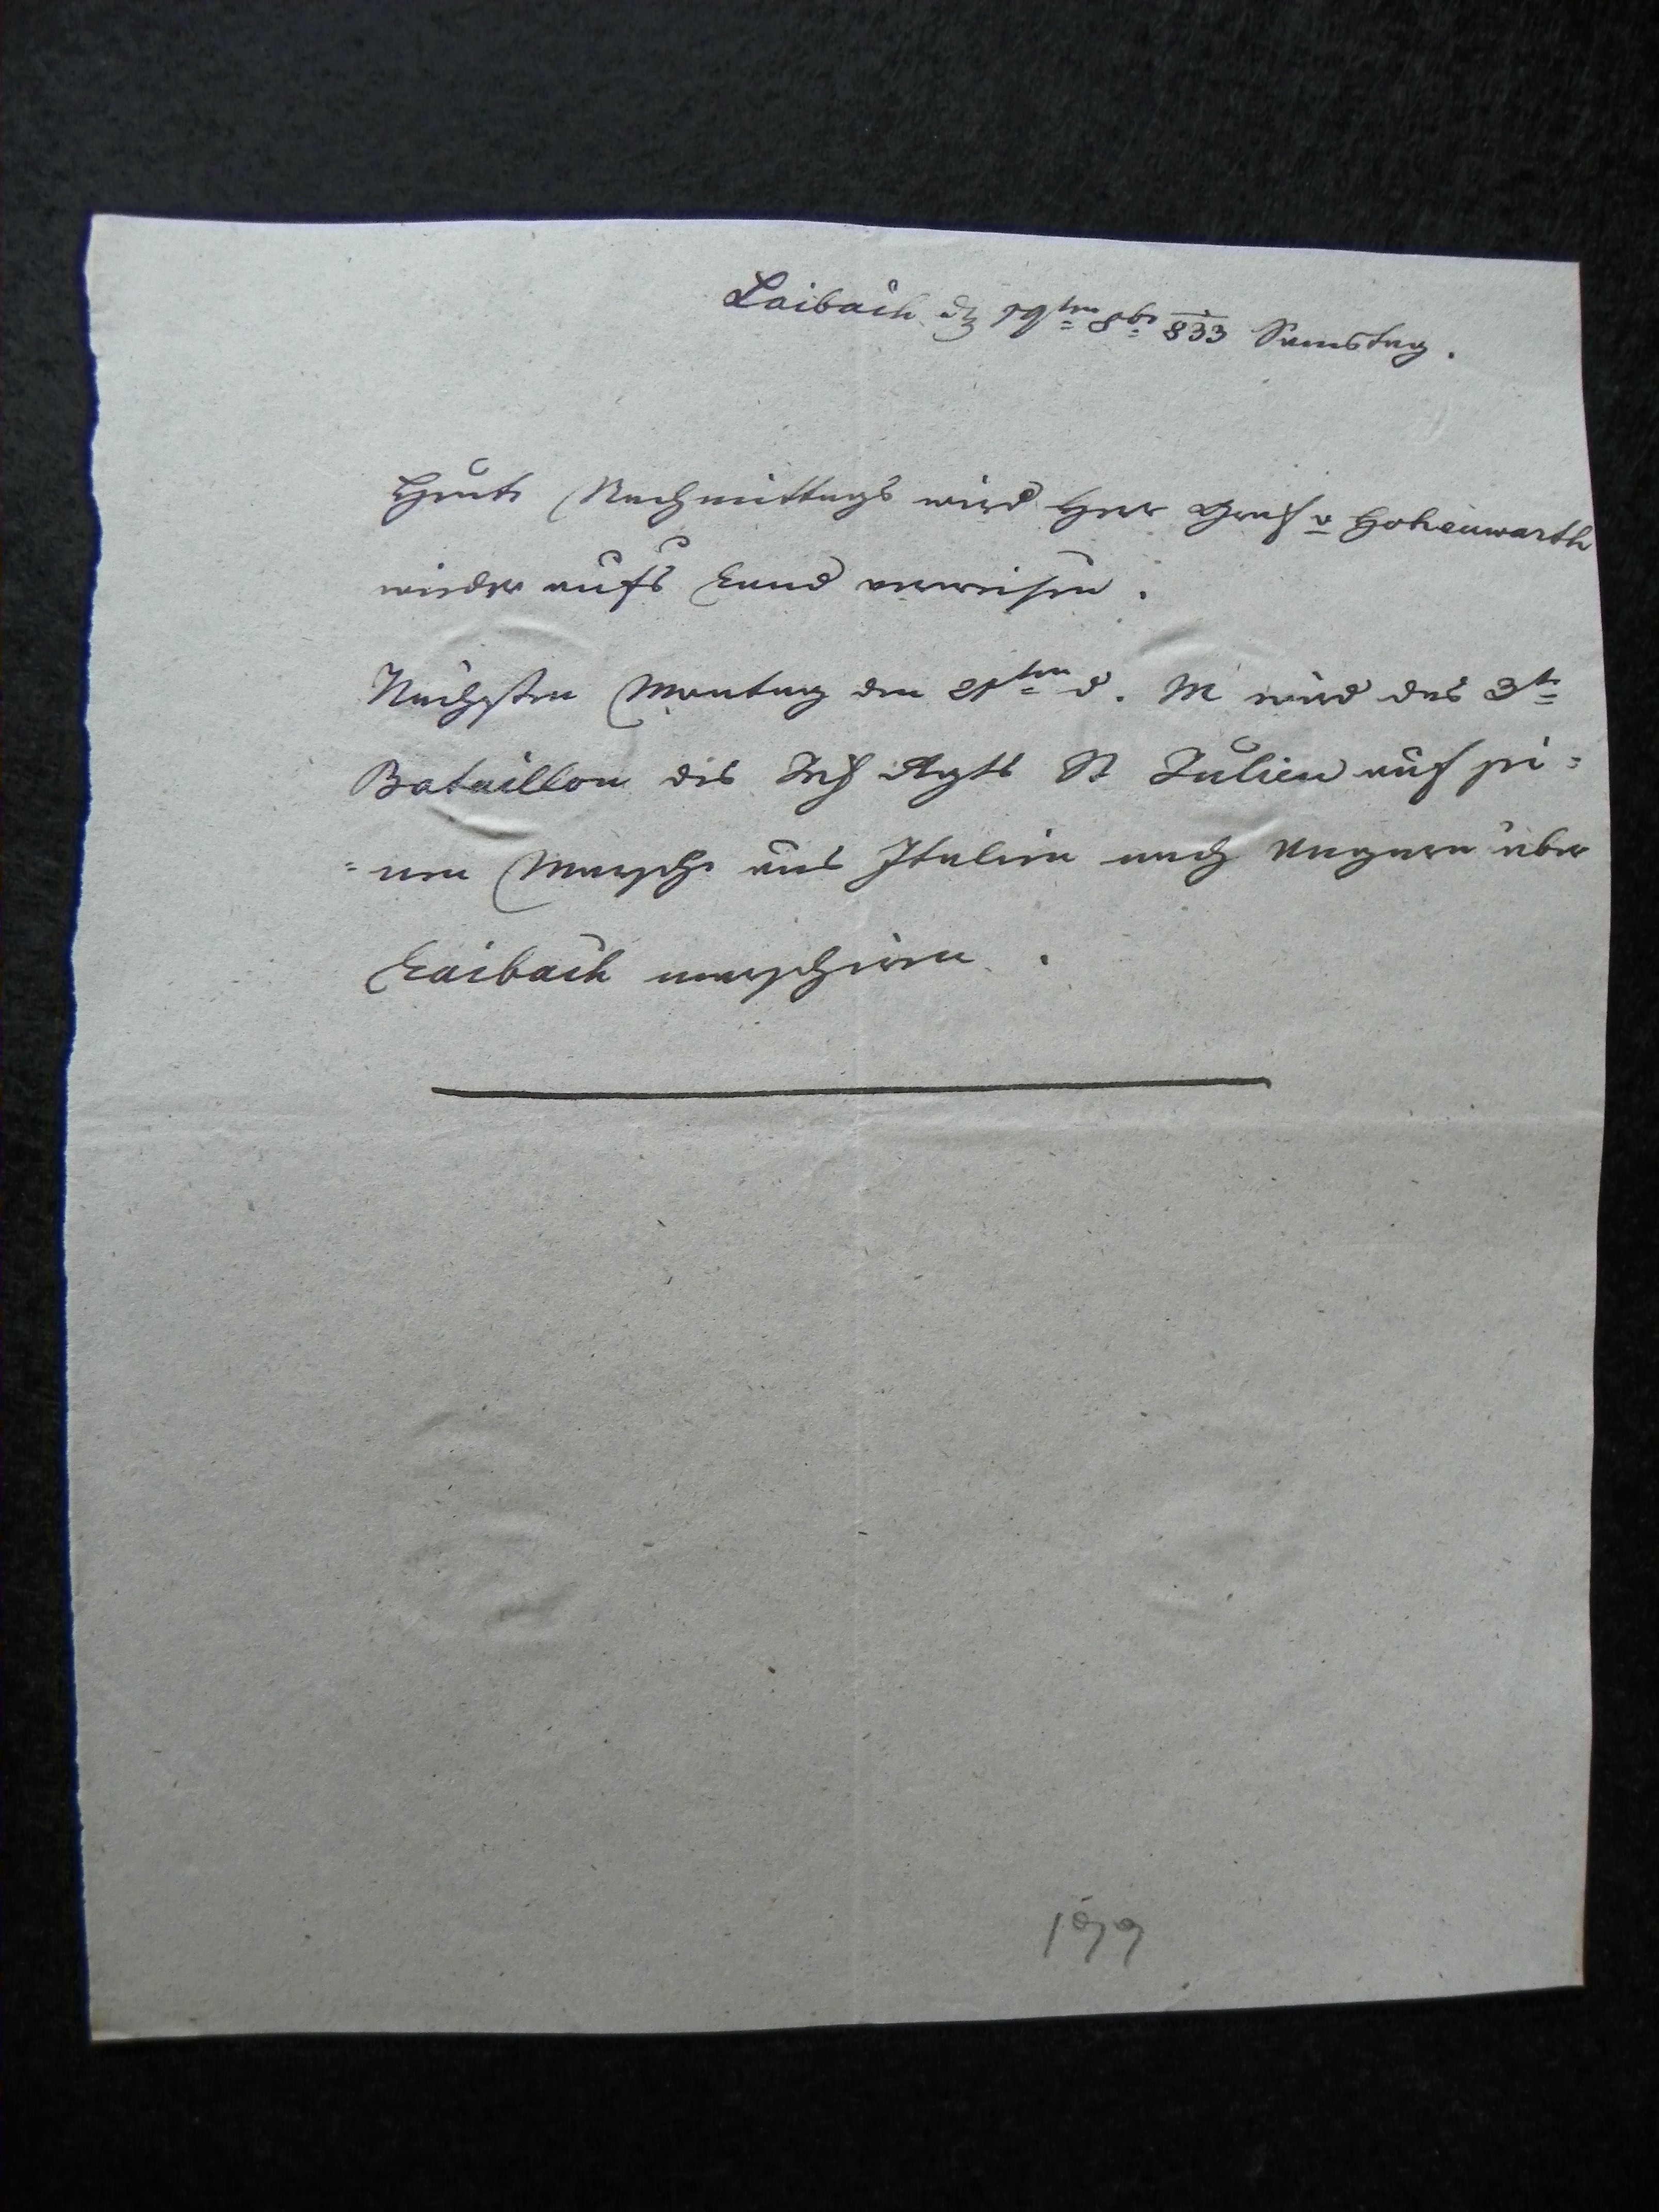 Laibach den 19ten 8br 833 Samstag.
Heute Nachmittags wird Herr Graf v Hohenwarth
wieder aufs Land verreisen.
Nächsten Montag den 21ten d. M wird das 3te
Bataillon des Inf Rgts St Julien auf sei=
=nem Marsche aus Italien nach Ungarn über
Laibach marschiren.